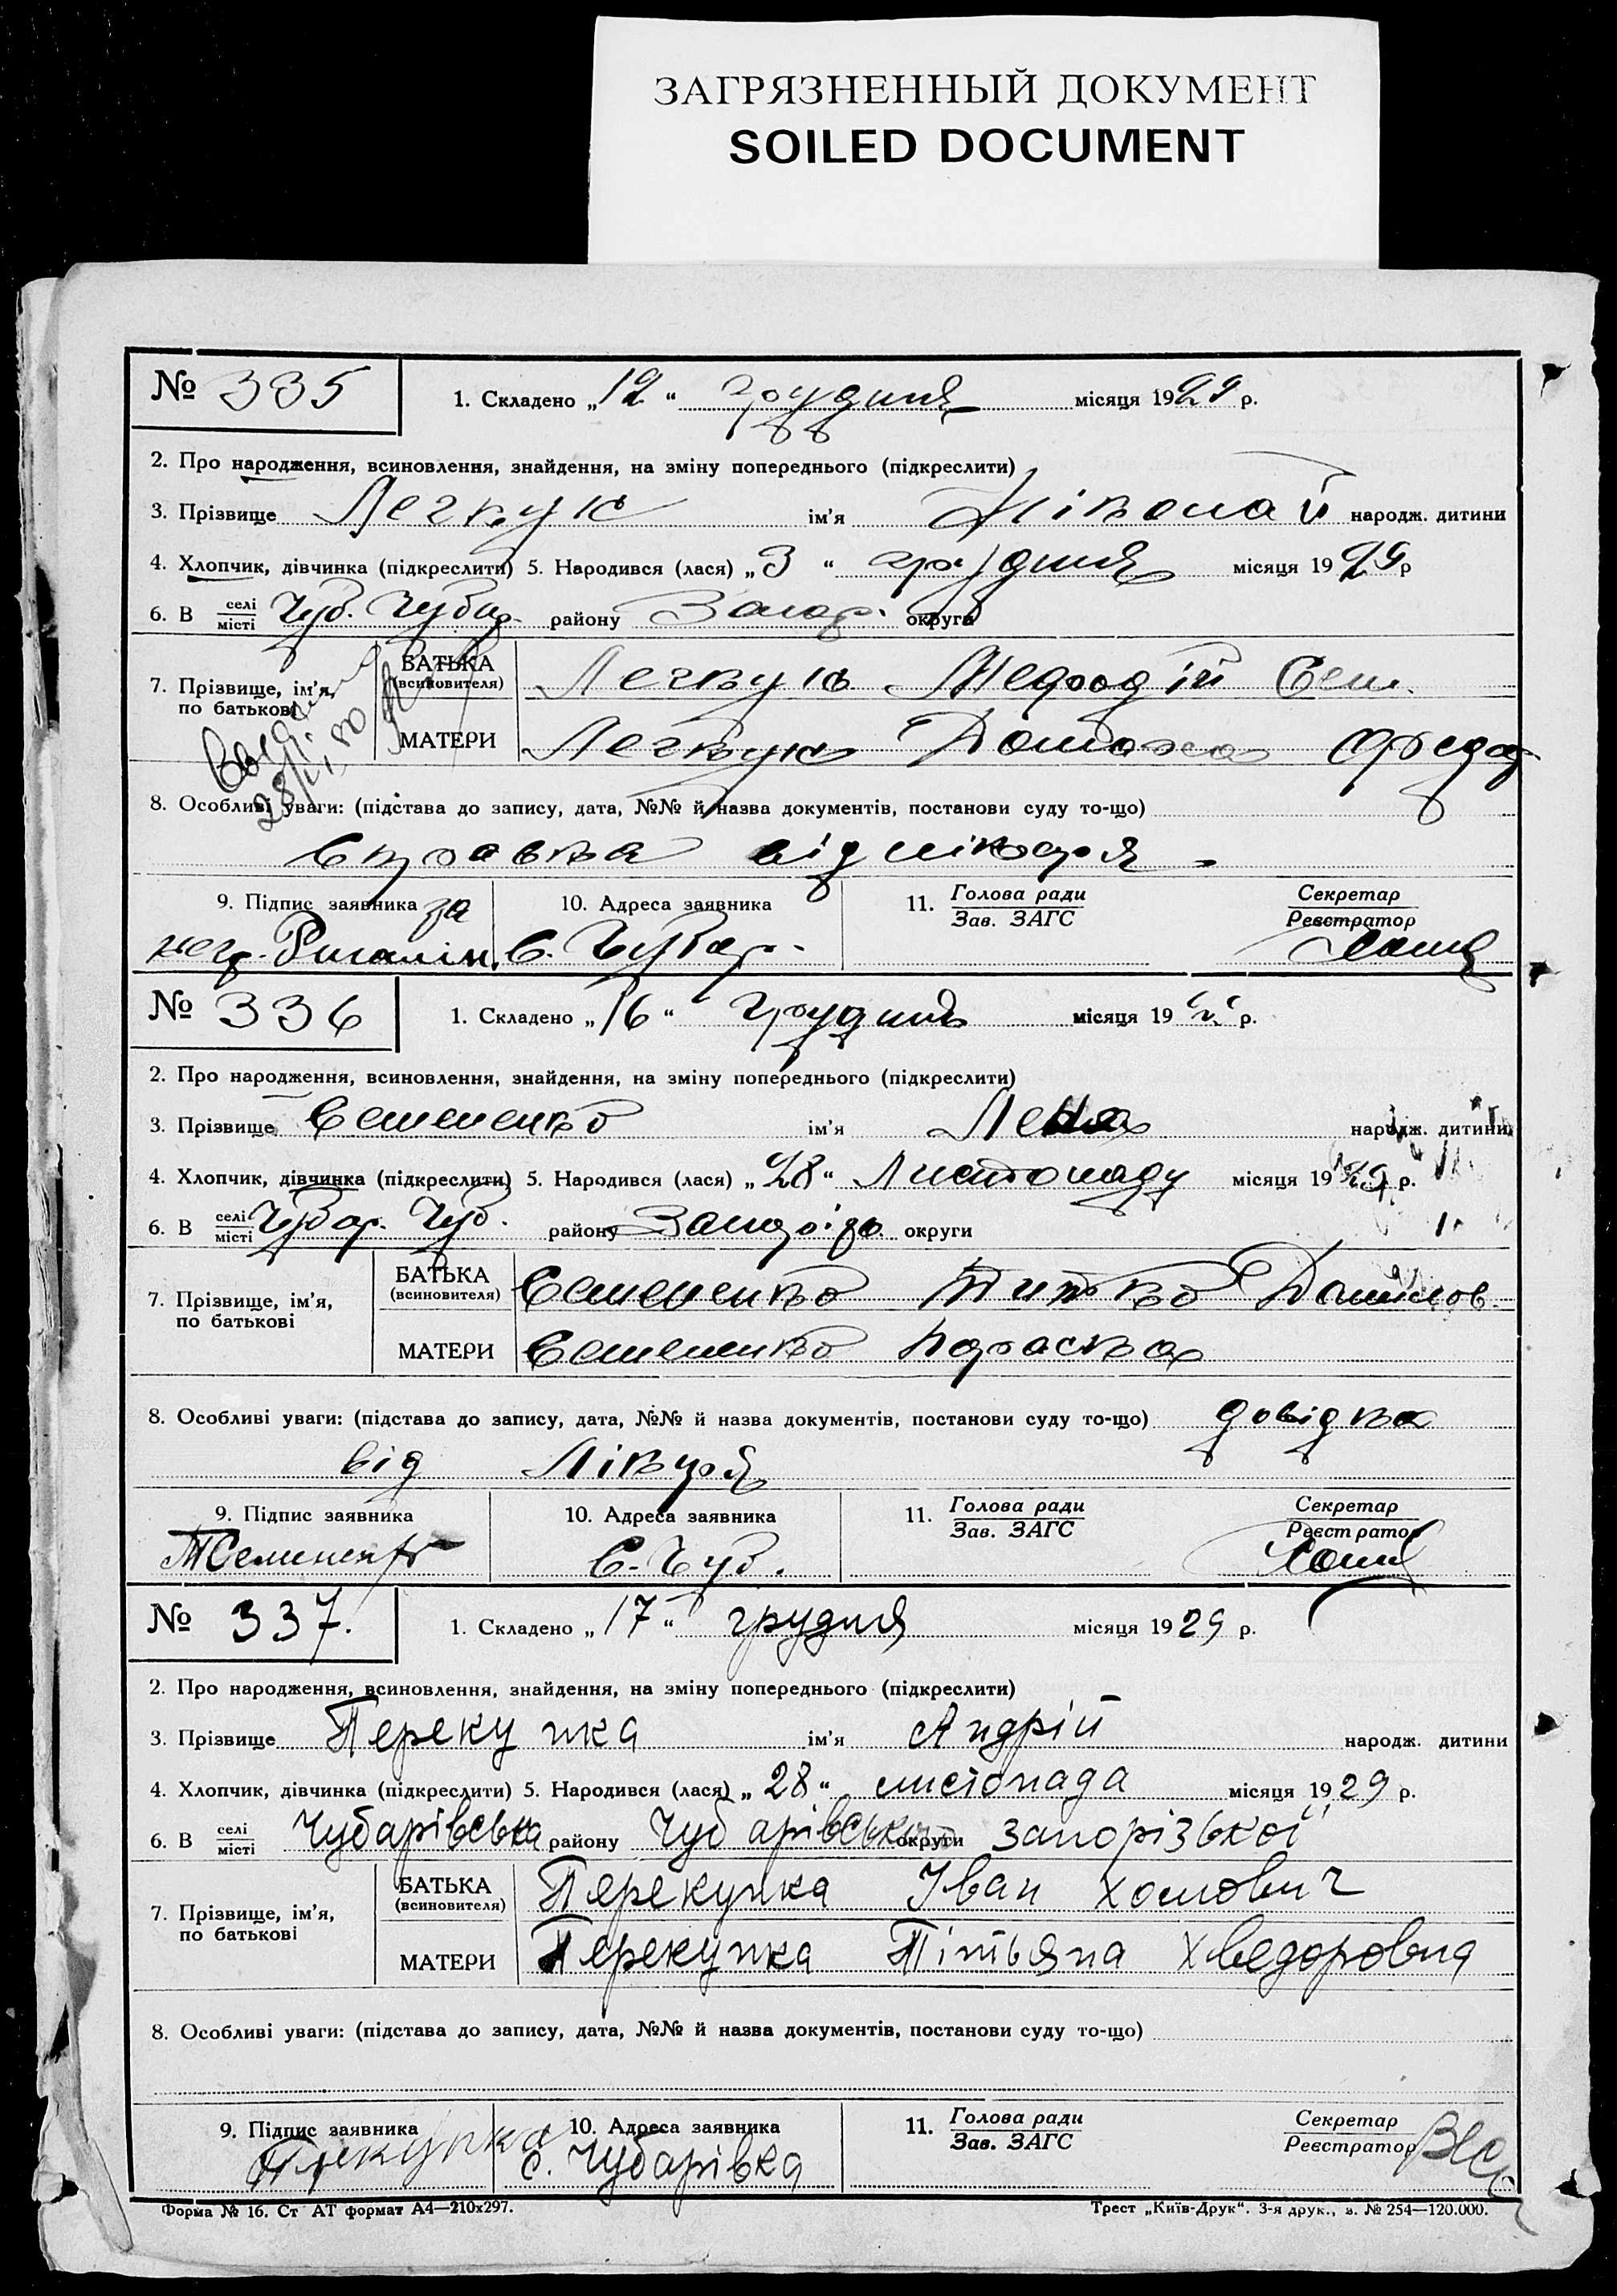 ЗАГРЯЗНЕННЫЙ ДОКУМЕНТ
SOILED DOCUMENT
№ 335
1. Складено „12“ грудня місяця 1929 р.
2. Про народження, всиновлення, знайдення, на зміну попереднього (підкреслити)
3. Прізвище Легкук ім'я Ніколай народж. дитини
4. Хлопчик, дівчинка (підкреслити) 5. Народився (лася) „3“ грудня місяця 1929 р
6. В селі/місті Чуб. Чубар. району Запор. округи
7. Прізвище, ім'я, по батькові
БАТЬКА (всиновителя) Легкук Мефодій Сем.
МАТЕРИ Легкук Домаха Федор
28/VI
8. Особливі уваги: (підстава до запису, дата, №№ й назва документів, постанови суду то-що)
Справка від лікаря
9. Підпис заявника за
10. Адреса заявника
11. Голова ради
Зав. ЗАГС
Секретар
Реєстратор
негр. с. Чубар.
№ 336
1. Складено „16“ грудня місяця 19 р.
2. Про народження, всиновлення, знайдення, на зміну попереднього (підкреслити)
3. Прізвище Семененко ім'я Лена народж. дитини
4. Хлопчик, дівчинка (підкреслити) 5. Народився (лася) „28“ Листопаду місяця 1929 р.
6. В селі/місті Чубар. Чуб. району Запоріз. округи
7. Прізвище, ім'я, по батькові
БАТЬКА (всиновителя) Семененко Титко Данилов
МАТЕРИ Семененко Параска
8. Особливі уваги: (підстава до запису, дата, №№ й назва документів, постанови суду то-що) довідка
від Лікаря
9. Підпис заявника
10. Адреса заявника
11. Голова ради
Зав. ЗАГС
Секретар
Реєстратор
ТСемененко с. Чуб.
№ 337.
1. Складено „17“ грудня місяця 1929 р.
2. Про народження, всиновлення, знайдення, на зміну попереднього (підкреслити)
3. Прізвище Перекупка ім'я Андрій народж. дитини
4. Хлопчик, дівчинка (підкреслити) 5. Народився (лася) „28“ листопада місяця 1929 р.
6. В селі/місті Чубарівська району Чубарівський округи Запорізької
7. Прізвище, ім'я, по батькові
БАТЬКА (всиновителя) Перекупка Іван Хомович
МАТЕРИ Перекупка Тітьяна Хведоровна
8. Особливі уваги: (підстава до запису, дата, №№ й назва документів, постанови суду то-що)
9. Підпис заявника
10. Адреса заявника
11. Голова ради
Зав. ЗАГС
Секретар
Реєстратор
с. Чубарівка
Форма № 16. Ст АТ формат А4—210х297.
Трест „Київ-Друк“. 3-я друк., з. № 254—120.000.